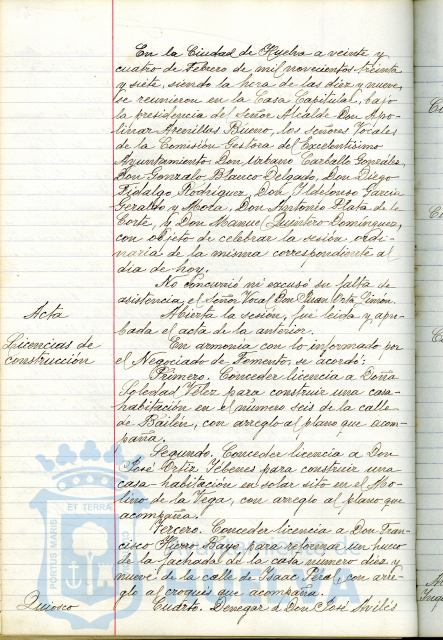 En la Ciudad de Huelva a veinte y
cuatro de Febrero de mil novecientos treinta
y siete, siendo la hora de las diez y nueve,
se reunieron en la Casa Capitular, bajo
la presidencia del Señor Alcalde Don Apo-
linar Arenillas Bueno, los señores Vocales
de la Comisión Gestora del Excelentísimo
Ayuntamiento, Don Urbano Carballo González,
Don Gonzalo Blanco Delgado, Don Diego
Fidalgo Rodríguez, Don Ildefonso García
Geraldo y Mota, Don Antonio Plata de la
Corte, y Don Manuel Quintero Domínguez,
con objeto de celebrar la sesión ordi-
naria de la misma correspondiente al
día de hoy.
No concurrió ni excusó su falta de
asistencia, el Señor Vocal Don Juan Ortiz Limón.
Acta
Abierta la sesión, fué leída y apro-
bada el acta de la anterior.
Licencias de
construcción
En armonía con lo informado por
el Negociado de Fomento, se acordó:
Primero. Conceder licencia a Doña
Soledad Vélez para construir una casa
habitación en el número seis de la calle
de Bailén, con arreglo al plano que acom-
paña.
Segundo. Conceder licencia a Don
José Ortiz Yébenes para construir una
casa habitación en solar sito en el Mo-
lino de la Vega, con arreglo al plano que
acompaña.
Tercero. Conceder licencia a Don Fran-
cisco Hierro Bayo para reformar un hueco
de la fachada de la casa número diez y
nueve de la calle de Isaac Peral, con arre-
glo al croquis que acompaña.
Quiosco
Cuarto. Denegar a Don José Avilés
PORTUS MARIS ET TERRAE